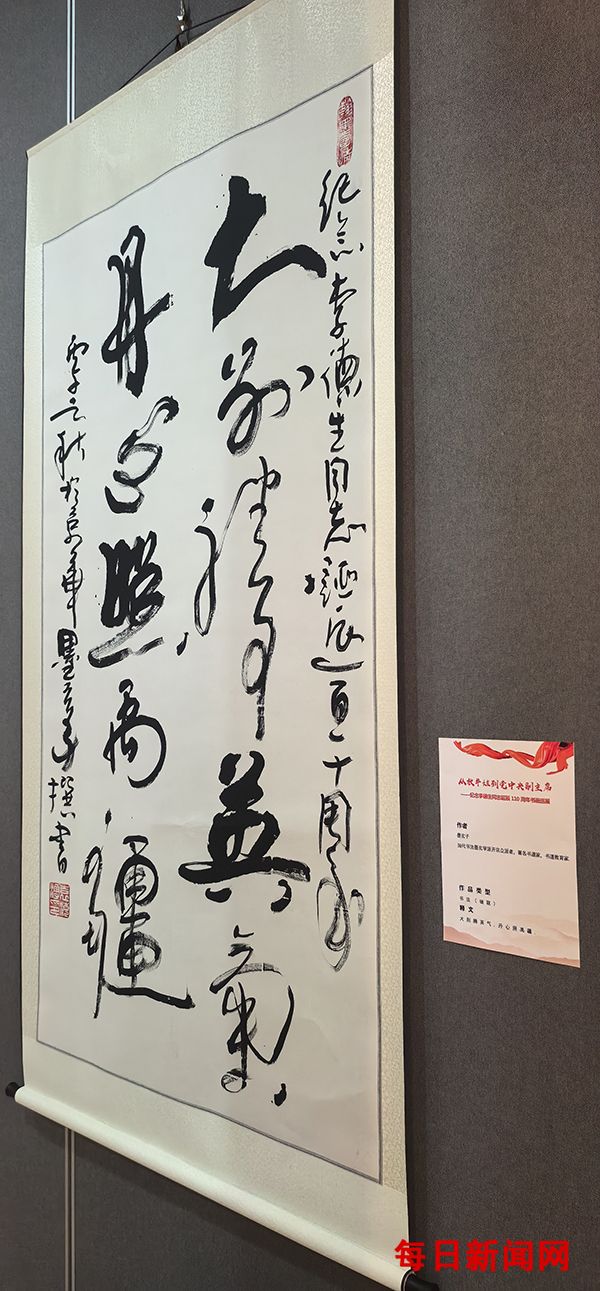 纪念李德生同志诞辰百十周年
大别英氣
丹心照禹疆
之秋於京華墨玄子撰书
从牧牛娃到党中央副主席
——纪念李德生同志诞辰 110 周年书画巡展
作者
墨玄子
当代书法墨玄学派开宗立派者，著名书道家，书道教育家
作品类型
书法（竖幅）
释文
大别英气，丹心照禹疆
每日新闻网